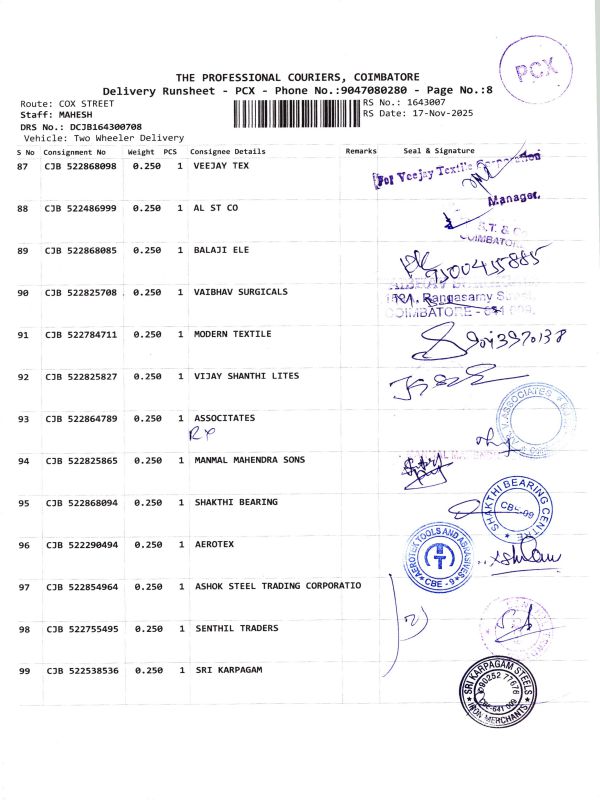 PCX
THE PROFESSIONAL COURIERS, COIMBATORE
Delivery Runsheet - PCX - Phone No.:9047080280 - Page No.:8
Route: COX STREET
RS No.: 1643007
Staff: MAHESH
RS Date: 17-Nov-2025
DRS No.: DCJB164300708
Vehicle: Two Wheeler Delivery
S No Consignment No Weight PCS Consignee Details Remarks Seal & Signature
87 CJB 522868098 0.250 1 VEEJAY TEX
For Veejay Textile Corporation
Manager.
88 CJB 522486999 0.250 1 AL ST CO
S.T. & Co
COIMBATORE
89 CJB 522868085 0.250 1 BALAJI ELE
9500455885
90 CJB 522825708 0.250 1 VAIBHAV SURGICALS
Rangasamy
COIMBATORE - 641 009.
91 CJB 522784711 0.250 1 MODERN TEXTILE
92 CJB 522825827 0.250 1 VIJAY SHANTHI LITES
93 CJB 522864789 0.250 1 ASSOCITATES
ASSOCIATES
94 CJB 522825865 0.250 1 MANMAL MAHENDRA SONS
95 CJB 522868094 0.250 1 SHAKTHI BEARING
SHAKTHI BEARING CENTRE
CBE-09
96 CJB 522290494 0.250 1 AEROTEX
AEROTEX TOOLS AND ABRASIVES
CBE - 9
97 CJB 522854964 0.250 1 ASHOK STEEL TRADING CORPORATIO
98 CJB 522755495 0.250 1 SENTHIL TRADERS
99 CJB 522538536 0.250 1 SRI KARPAGAM
SRI KARPAGAM STEELS
90252 77676
CBE-641 009
IRON MERCHANTS